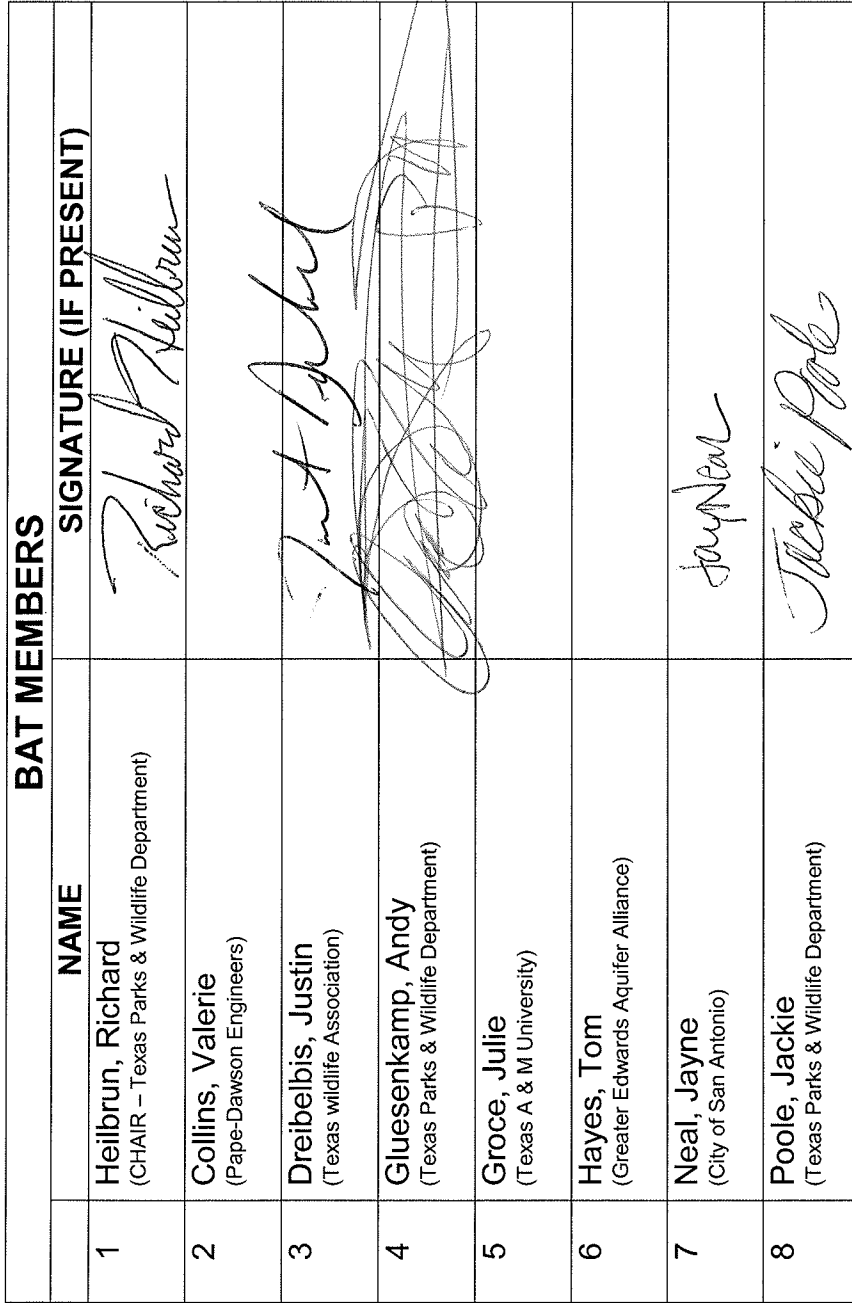 BAT MEMBERS
NAME SIGNATURE (IF PRESENT)
1 Heilbrun, Richard Richard Heilbrun
(CHAIR – Texas Parks & Wildlife Department)
2 Collins, Valerie
(Pape-Dawson Engineers)
3 Dreibelbis, Justin
(Texas wildlife Association)
4 Gluesenkamp, Andy
(Texas Parks & Wildlife Department)
5 Groce, Julie
(Texas A & M University)
6 Hayes, Tom
(Greater Edwards Aquifer Alliance)
7 Neal, Jayne JayNeal
(City of San Antonio)
8 Poole, Jackie Jackie Poole
(Texas Parks & Wildlife Department)